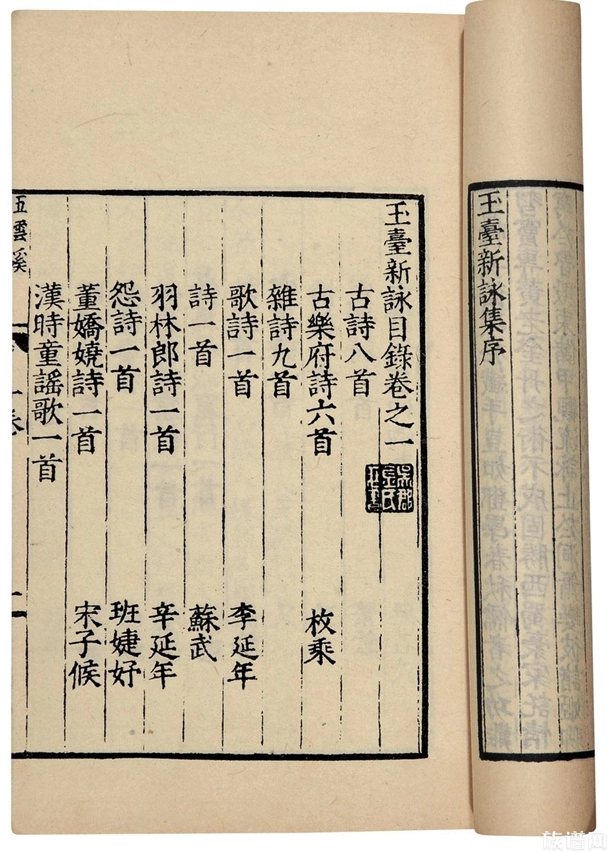 玉臺新詠集序
玉臺新詠目錄卷之一
古詩八首
古樂府詩六首 枚乘
雜詩九首
歌詩一首 李延年
詩一首 蘇武
羽林郎詩一首 辛延年
怨詩一首 班婕妤
董嬌嬈詩一首 宋子候
漢時童謠歌一首
五雲溪
一卷
二
族谱网